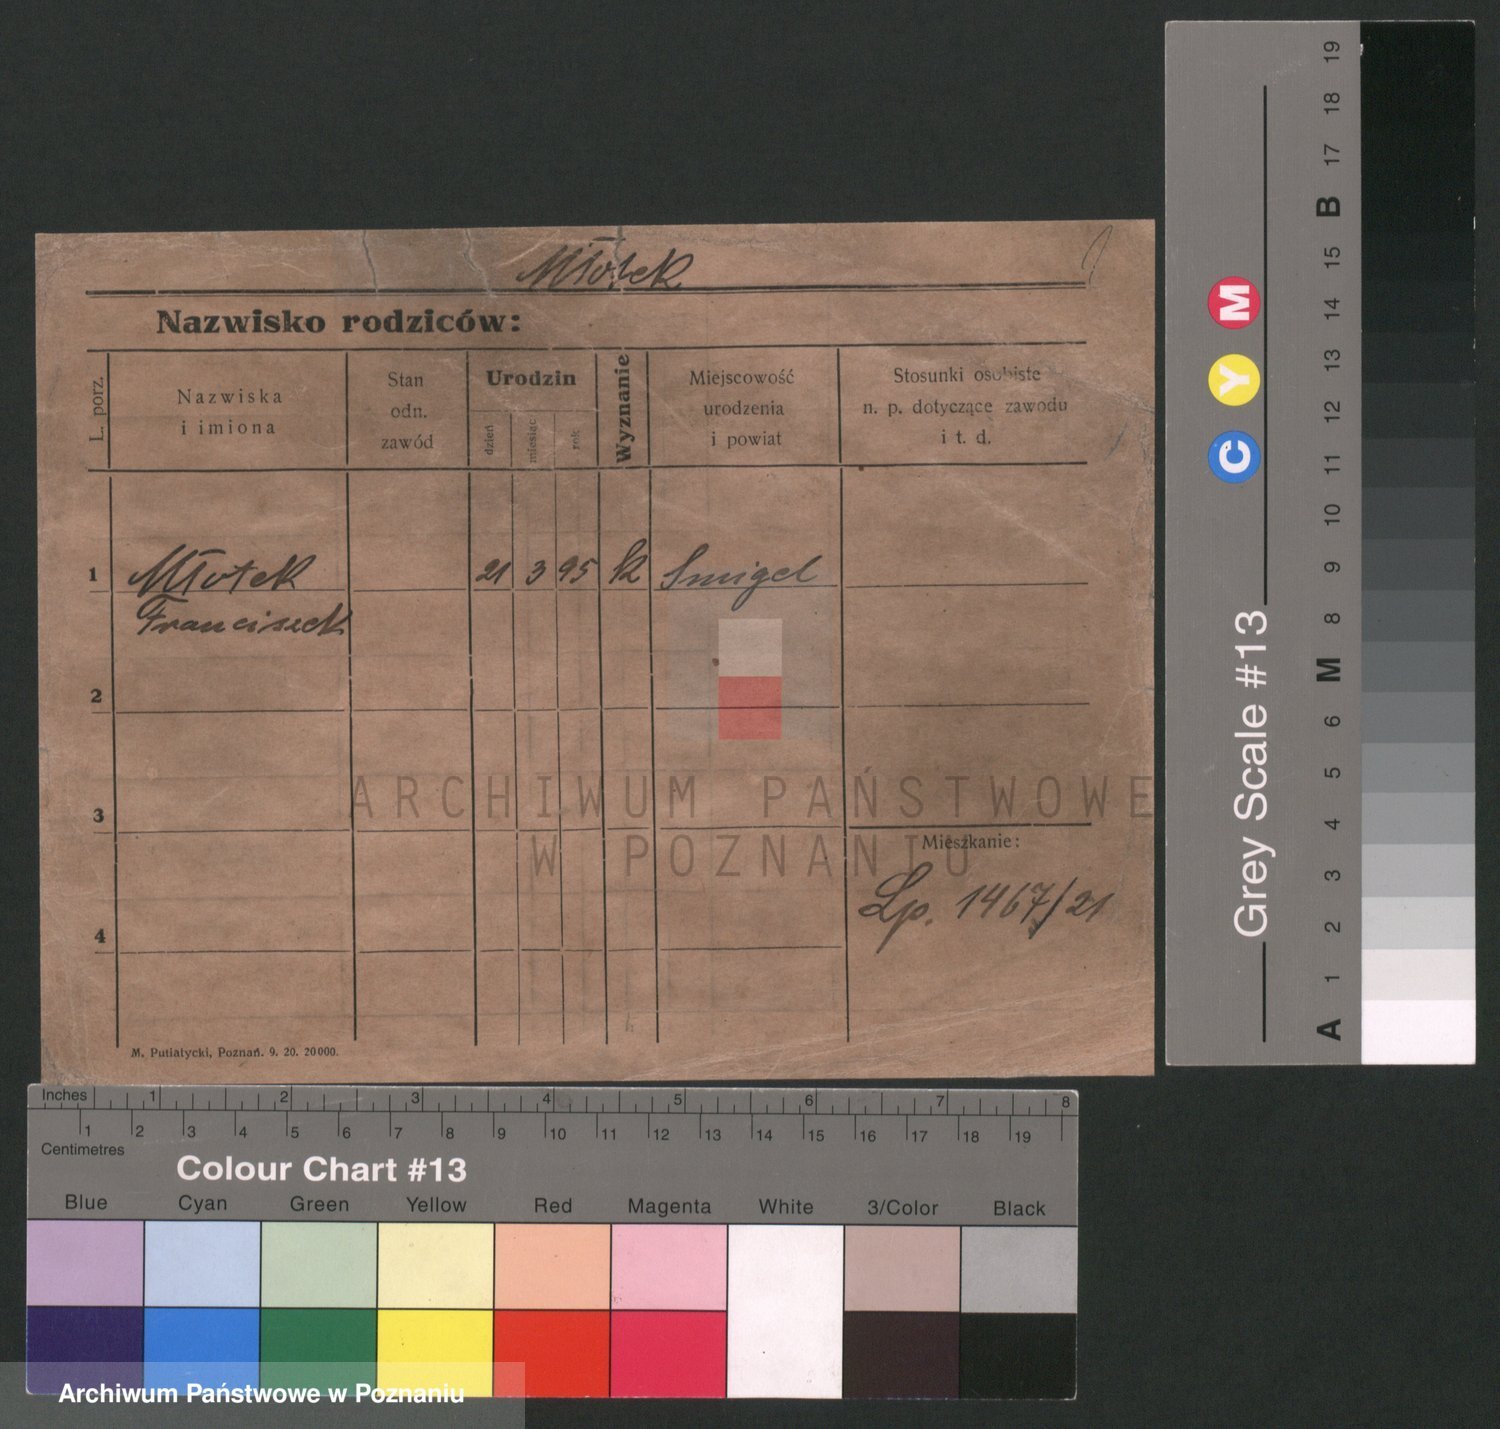 Młotek
Nazwisko rodziców:
L. porz.
Nazwiska
i imiona
Stan
odn.
zawód
Urodzin
dzień
miesiąc
rok
Wyznanie
Miejscowość
urodzenia
i powiat
Stosunki osobiste
n. p. dotyczące zawodu
i t. d.
1 Młotek 21 3 95 k Smigel
Franciszek
2
3
4
Mieszkanie:
Lp. 1467/21
M. Putiatycki, Poznań. 9. 20. 20000.
ARCHIWUM PAŃSTWOWE
W POZNANIU
Inches 1 2 3 4 5 6 7 8
1 2 3 4 5 6 7 8 9 10 11 12 13 14 15 16 17 18 19
Centimetres
Colour Chart #13
Blue Cyan Green Yellow Red Magenta White 3/Color Black
Archiwum Państwowe w Poznaniu
Grey Scale #13
C Y M
A 1 2 3 4 5 6 M 8 9 10 11 12 13 14 15 B 17 18 19